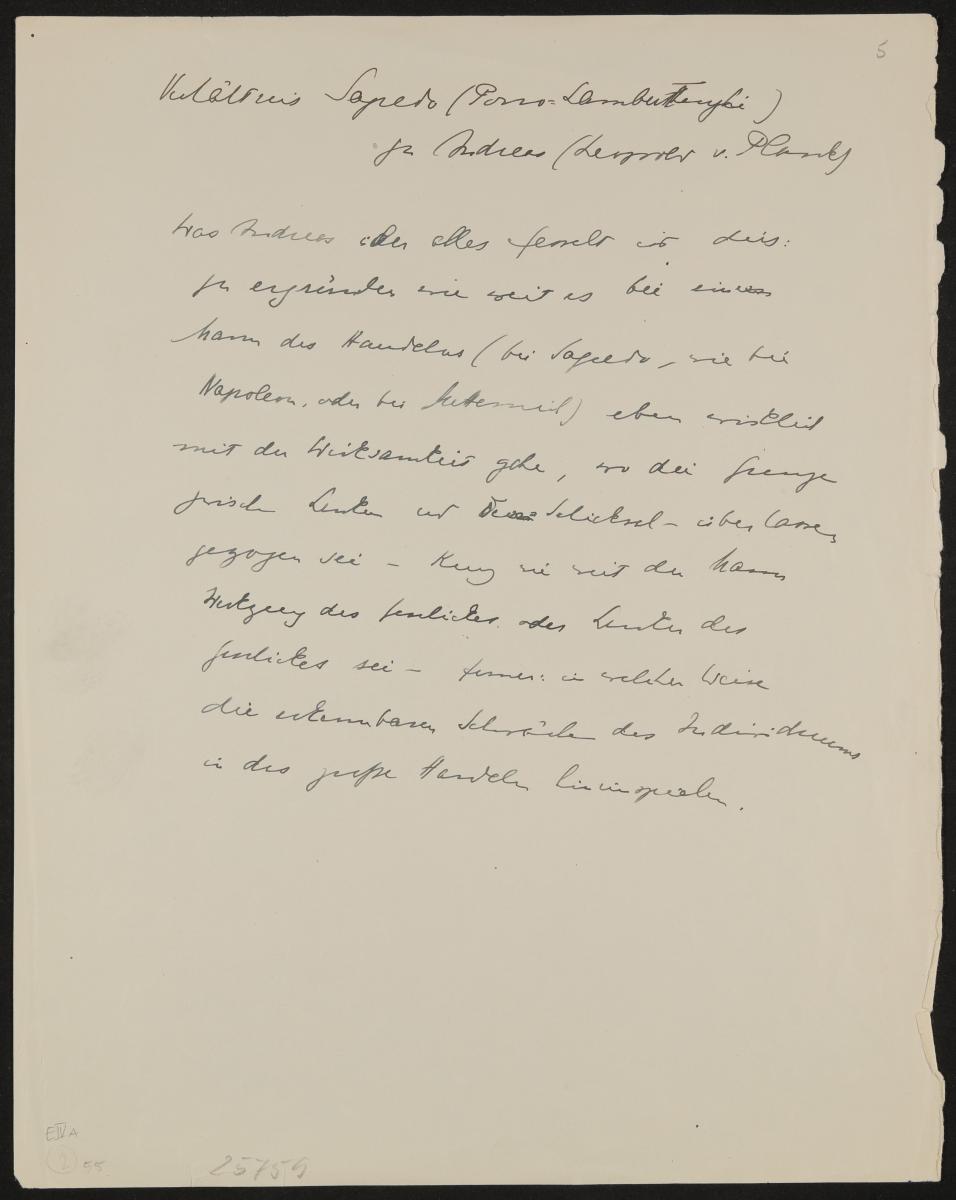 5
Verhältnis Sagredo (Porro-Lambertenghi)
zu Andreas (Leopold v. Andrian)
Was Andreas über alles fesselt ist dies:
zu ergründen wie weit es bei einem
Mann des Handelns (bei Sagredo, wie bei
Napoleon, oder bei Metternich) eben wirklich
mit der Wirksamkeit gehe, wo die Grenze
zwischen Lenken und Schicksal-überlassen
gezogen sei – Kurz wie weit der Mann
Werkzeug des Geschickes oder Lenker des
Geschickes sei – ferner: in welcher Weise
die erkennbaren Schwächen des Individuums
in das große Handeln hineinspielen.
E IV A
2 55
25759